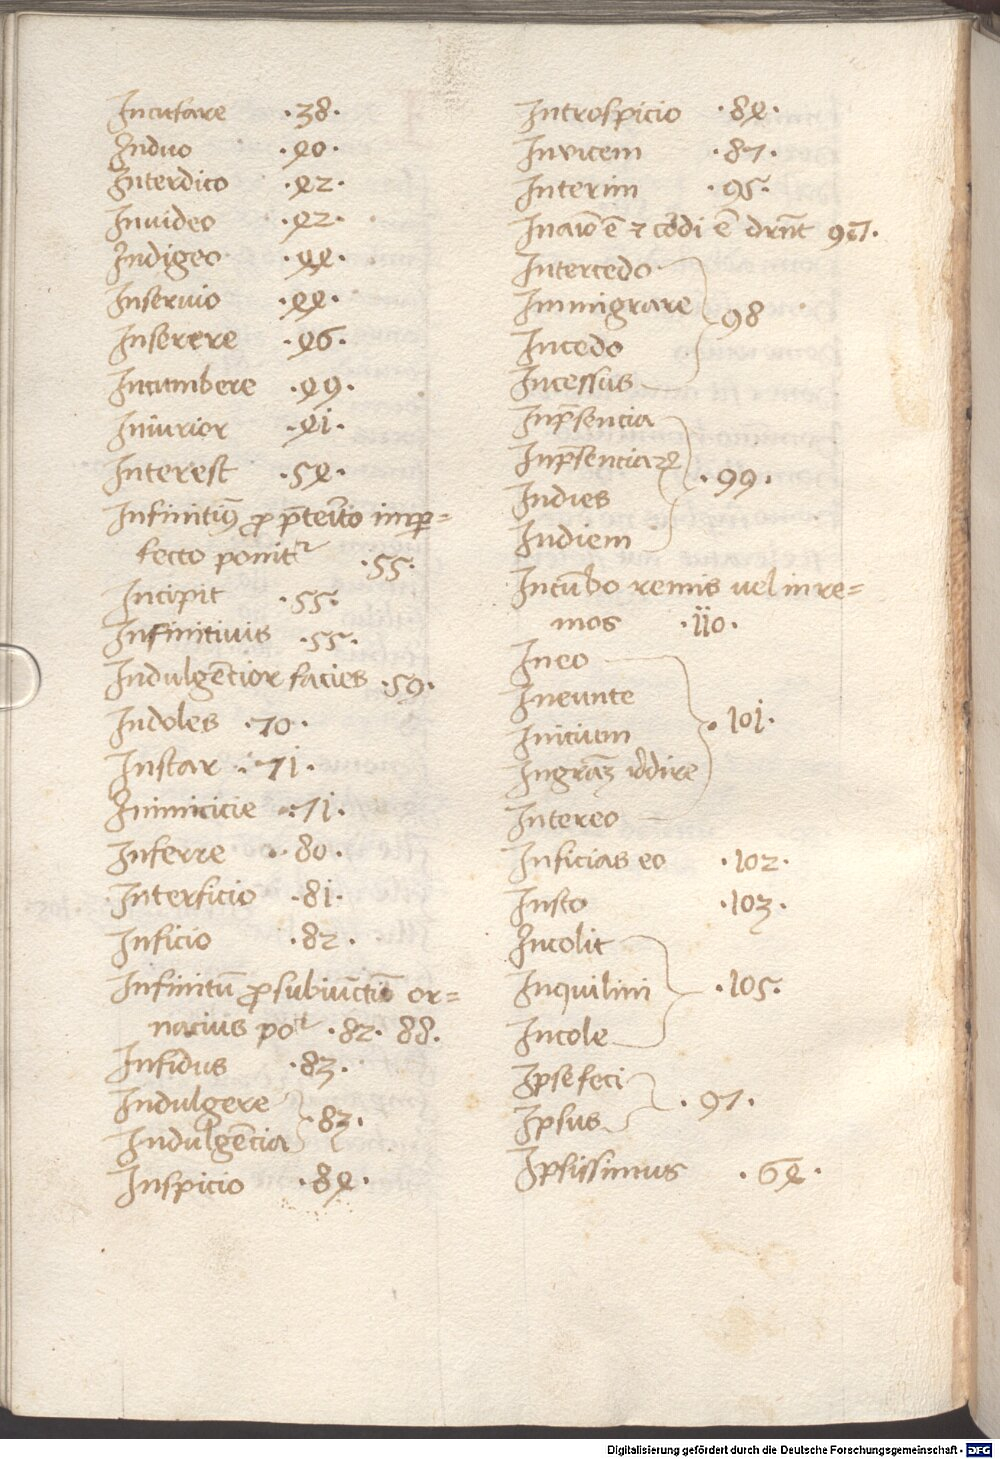 Incusare ·38·
Induo ·40·
Interdico ·42·
Inuideo ·42·
Indigeo ·44·
Inseruio ·44·
Inserere ·46·
Incumbere ·49·
Iniurior ·41·
Interest ·54·
Infinitiuꝰ ꝓ p̄terito imper=
fecto ponit᷑ ·55·
Incipit ·55·
Infinitiuis ·55·
Indulgēcior facies ·59·
Indoles ·70·
Instar ·71·
Inimicicie ·71·
Inferre ·80·
Interficio ·81·
Inficio ·82·
Infinitū ꝓ subiūctiuo or=
nacius po ·82· 88·
Infidus ·83·
Indulgere
Indulgēcia ·83·
Inspicio ·84·
Introspicio ·84·
Inuicem ·87·
Interim ·95·
ē ⁊ ē 97·
Intercedo
Immigrare ·98
Incedo
Incessus
Inp̄sencia
Inp̄senciaꝝ
Indies ·99·
Indiem
Incūbo remis uel in re=
mos ·110·
Ineo
Ineunte
Inicium ·101·
Ingrāꝫ redire
Intereo
Inficias eo ·102·
Insto ·103·
Incolit
Inquilini ·105·
Incole
Ipse feci
Ipsus ·97·
Ipsissimus ·64·
Digitalisierung gefördert durch die Deutsche Forschungsgemeinschaft - DFG